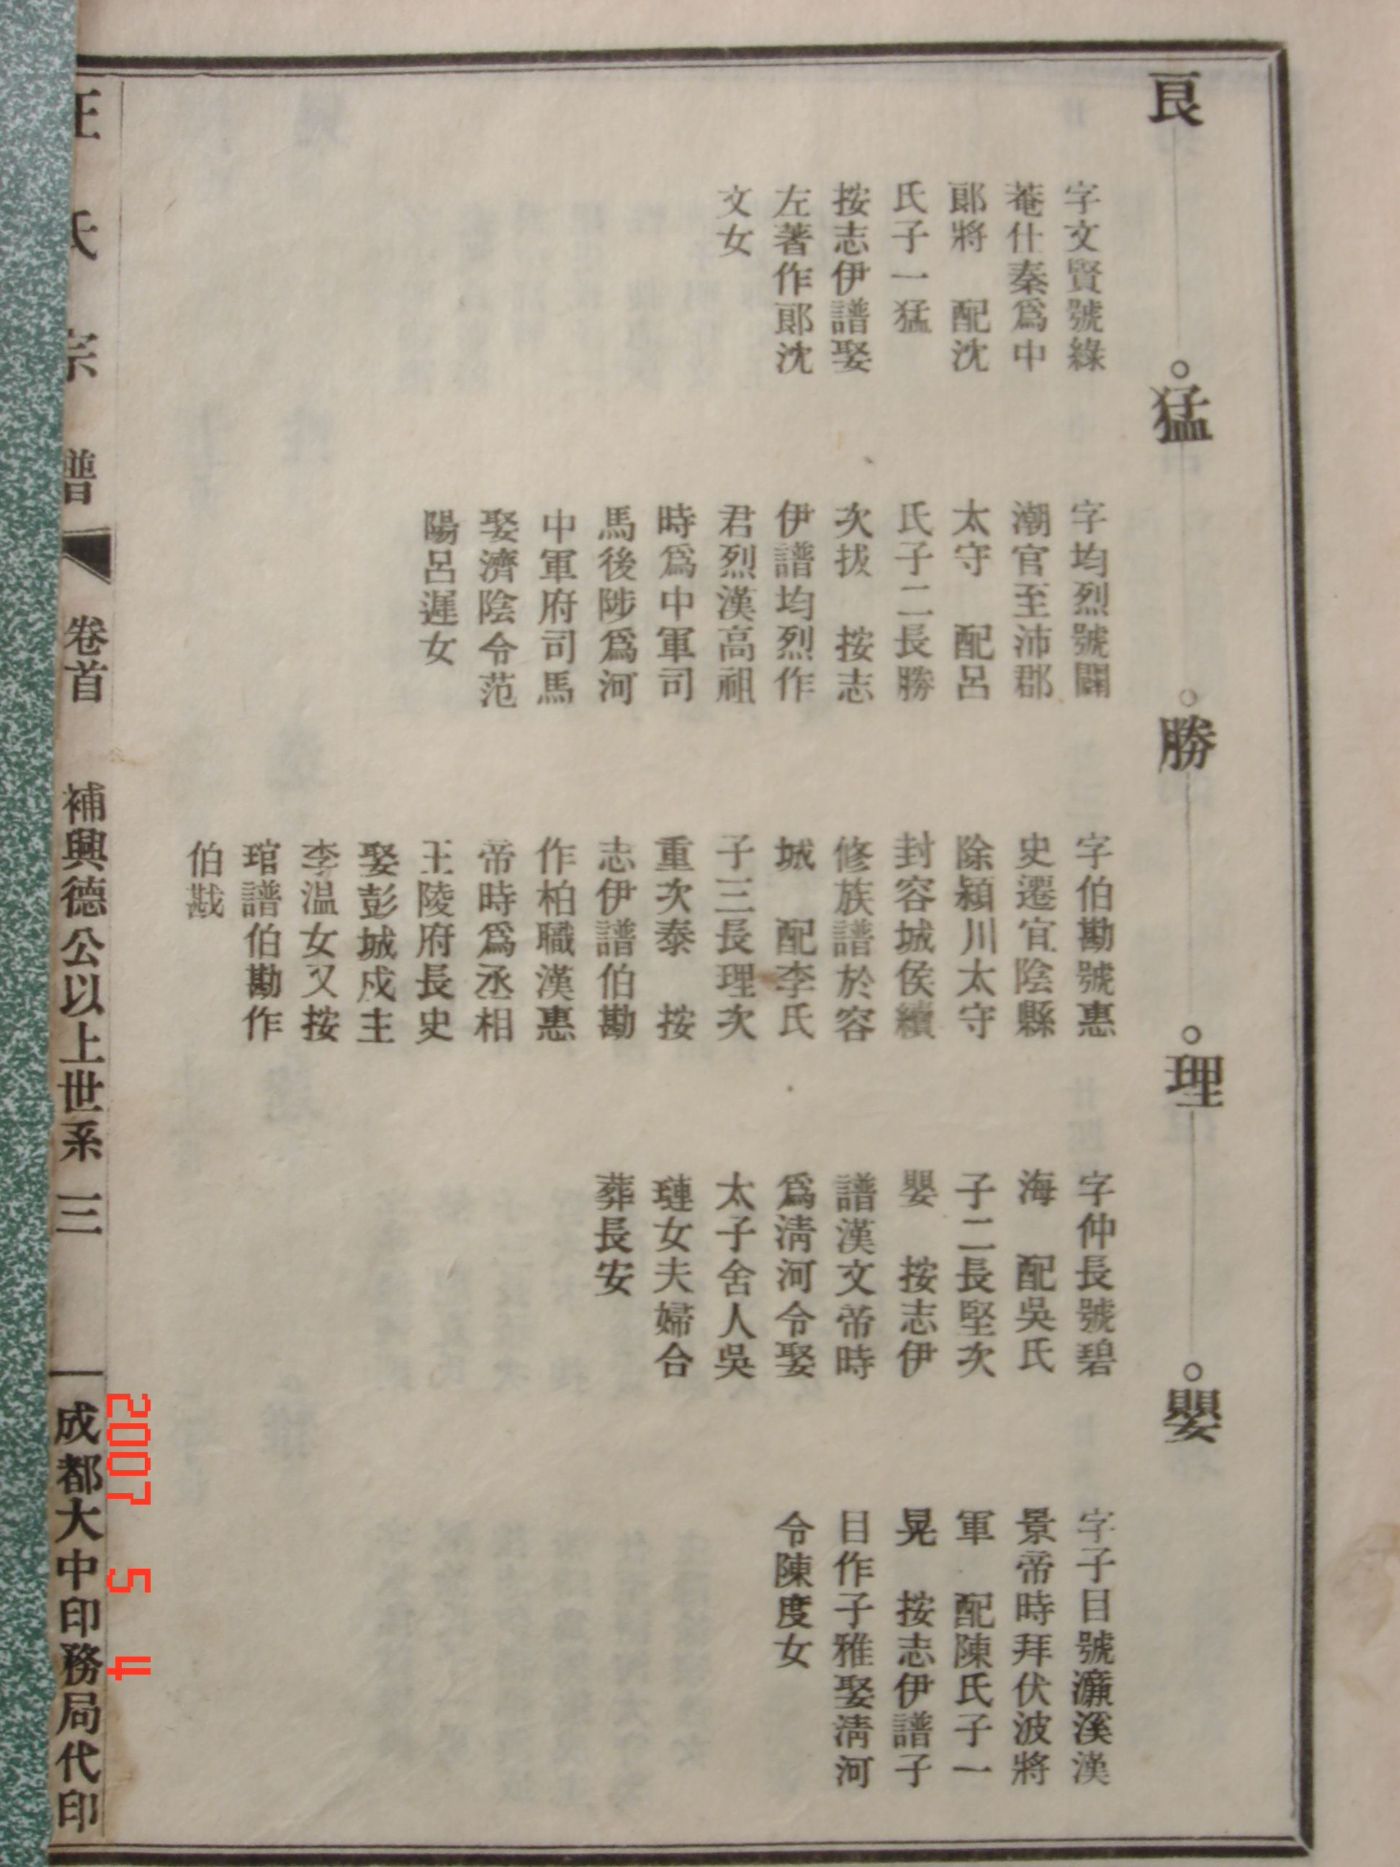 良
字文賢號綠
菴仕秦爲中
郎將　配沈
氏子一猛
按志伊譜娶
左著作郎沈
文女
猛
字均烈號闢
潮官至沛郡
太守　配呂
氏子二長勝
次拔　按志
伊譜均烈作
君烈漢高祖
時爲中軍司
馬後陟爲河
中軍府司馬
娶濟陰令范
陽呂遲女
勝
字伯勘號惠
史遷宜陰縣
除潁川太守
封容城侯續
修族譜於容
城　配李氏
子三長理次
重次泰　按
志伊譜伯勘
作柏職漢惠
帝時爲丞相
王陵府長史
娶彭城戍主
李温女又按
琯譜伯勘作
伯戡
理
字仲長號碧
海　配吳氏
子二長堅次
嬰　按志伊
譜漢文帝時
爲淸河令娶
太子舍人吳
璉女夫婦合
葬長安
嬰
字子目號濂溪漢
景帝時拜伏波將
軍　配陳氏子一
晃　按志伊譜子
目作子雅娶淸河
令陳度女
氏宗譜　卷首　補興德公以上世系　三　成都大中印務局代印
2007 5 4